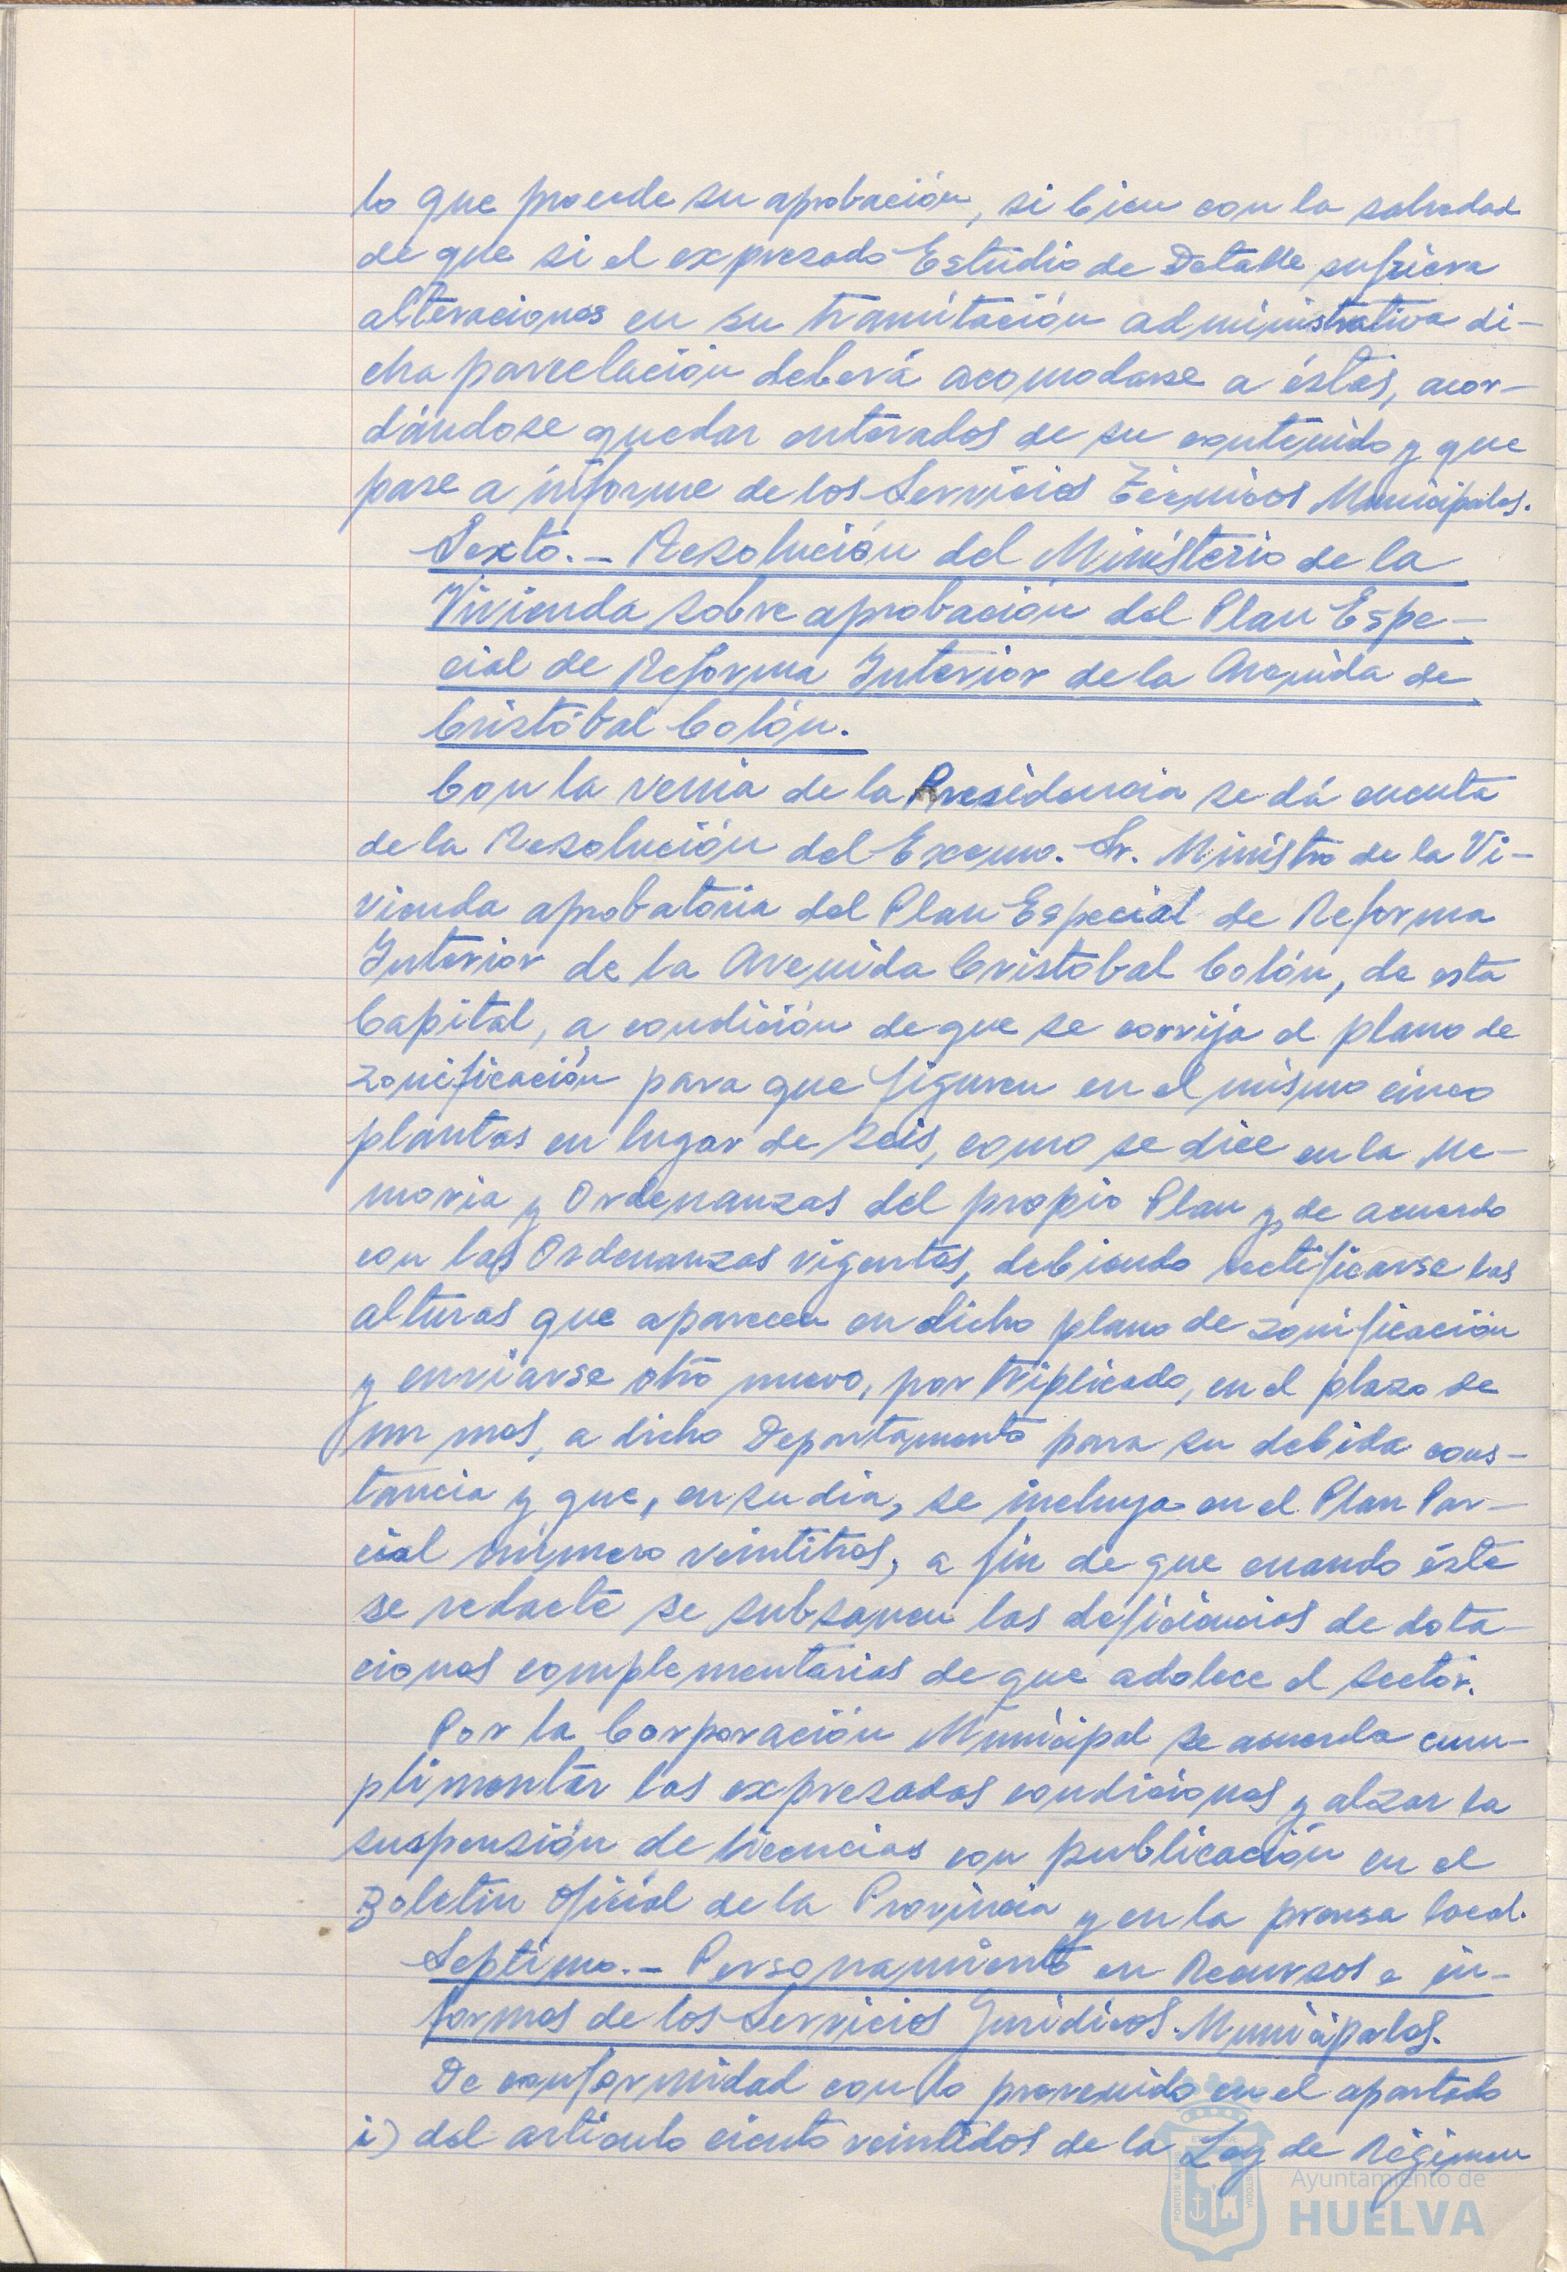 lo que procede su aprobación, si bien con la salvedad
de que si el expresado Estudio de Detalle sufriera
alteraciones en su tramitación administrativa di-
cha parcelación deberá acomodarse a éstas, acor-
dándose quedar enterados de su contenido y que
pase a informe de los Servicios Técnicos Municipales.
Sexto.- Resolución del Ministerio de la
Vivienda sobre aprobación del Plan Espe-
cial de Reforma Interior de la Avenida de
Cristóbal Colón.
Con la venia de la Presidencia se dá cuenta
de la Resolución del Excmo. Sr. Ministro de la Vi-
vienda aprobatoria del Plan Especial de Reforma
Interior de la Avenida Cristobal Colón, de esta
Capital, a condición de que se corrija el plano de
zonificación para que figuren en el mismo cinco
plantas en lugar de seis, como se dice en la Me-
moria y Ordenanzas del propio Plan y de acuerdo
con las Ordenanzas vigentes, debiendo rectificarse las
alturas que aparecen en dicho plano de zonificación
y enviarse otro nuevo, por triplicado, en el plazo de
un mes, a dicho Departamento para su debida cons-
tancia y que, en su dia, se incluya en el Plan Par-
cial número veintitres, a fin de que cuando éste
se redacte se subsanen las deficiencias de dota-
ciones complementarias de que adolece el sector.
Por la Corporación Municipal se acuerda cum-
plimentar las expresadas condiciones y alzar la
suspensión de licencias con publicación en el
Boletin Oficial de la Provincia y en la prensa local.
Septimo.- Personamiento en Recursos e in-
formes de los Servicios Jurídicos Municipales.
De conformidad con lo prevenido en el apartado
i) del articulo ciento veintidos de la Ley de Régimen
Ayuntamiento de
HUELVA